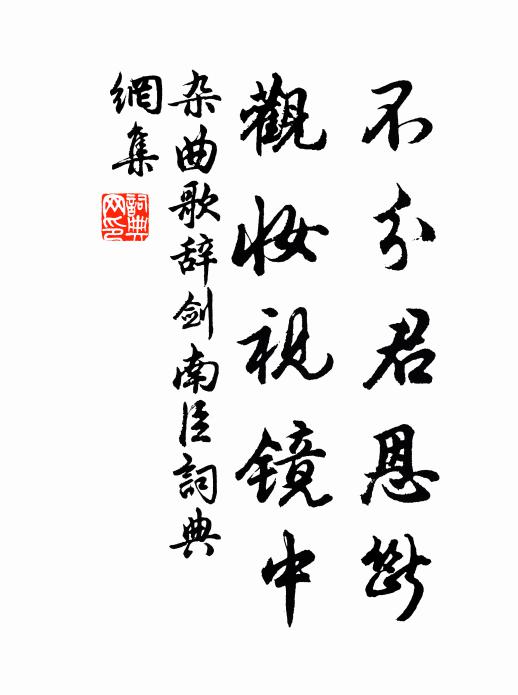 不分君恩斷
觀妝視镜中
杂曲歌辞劍南臣詞典
網集
詞典網印